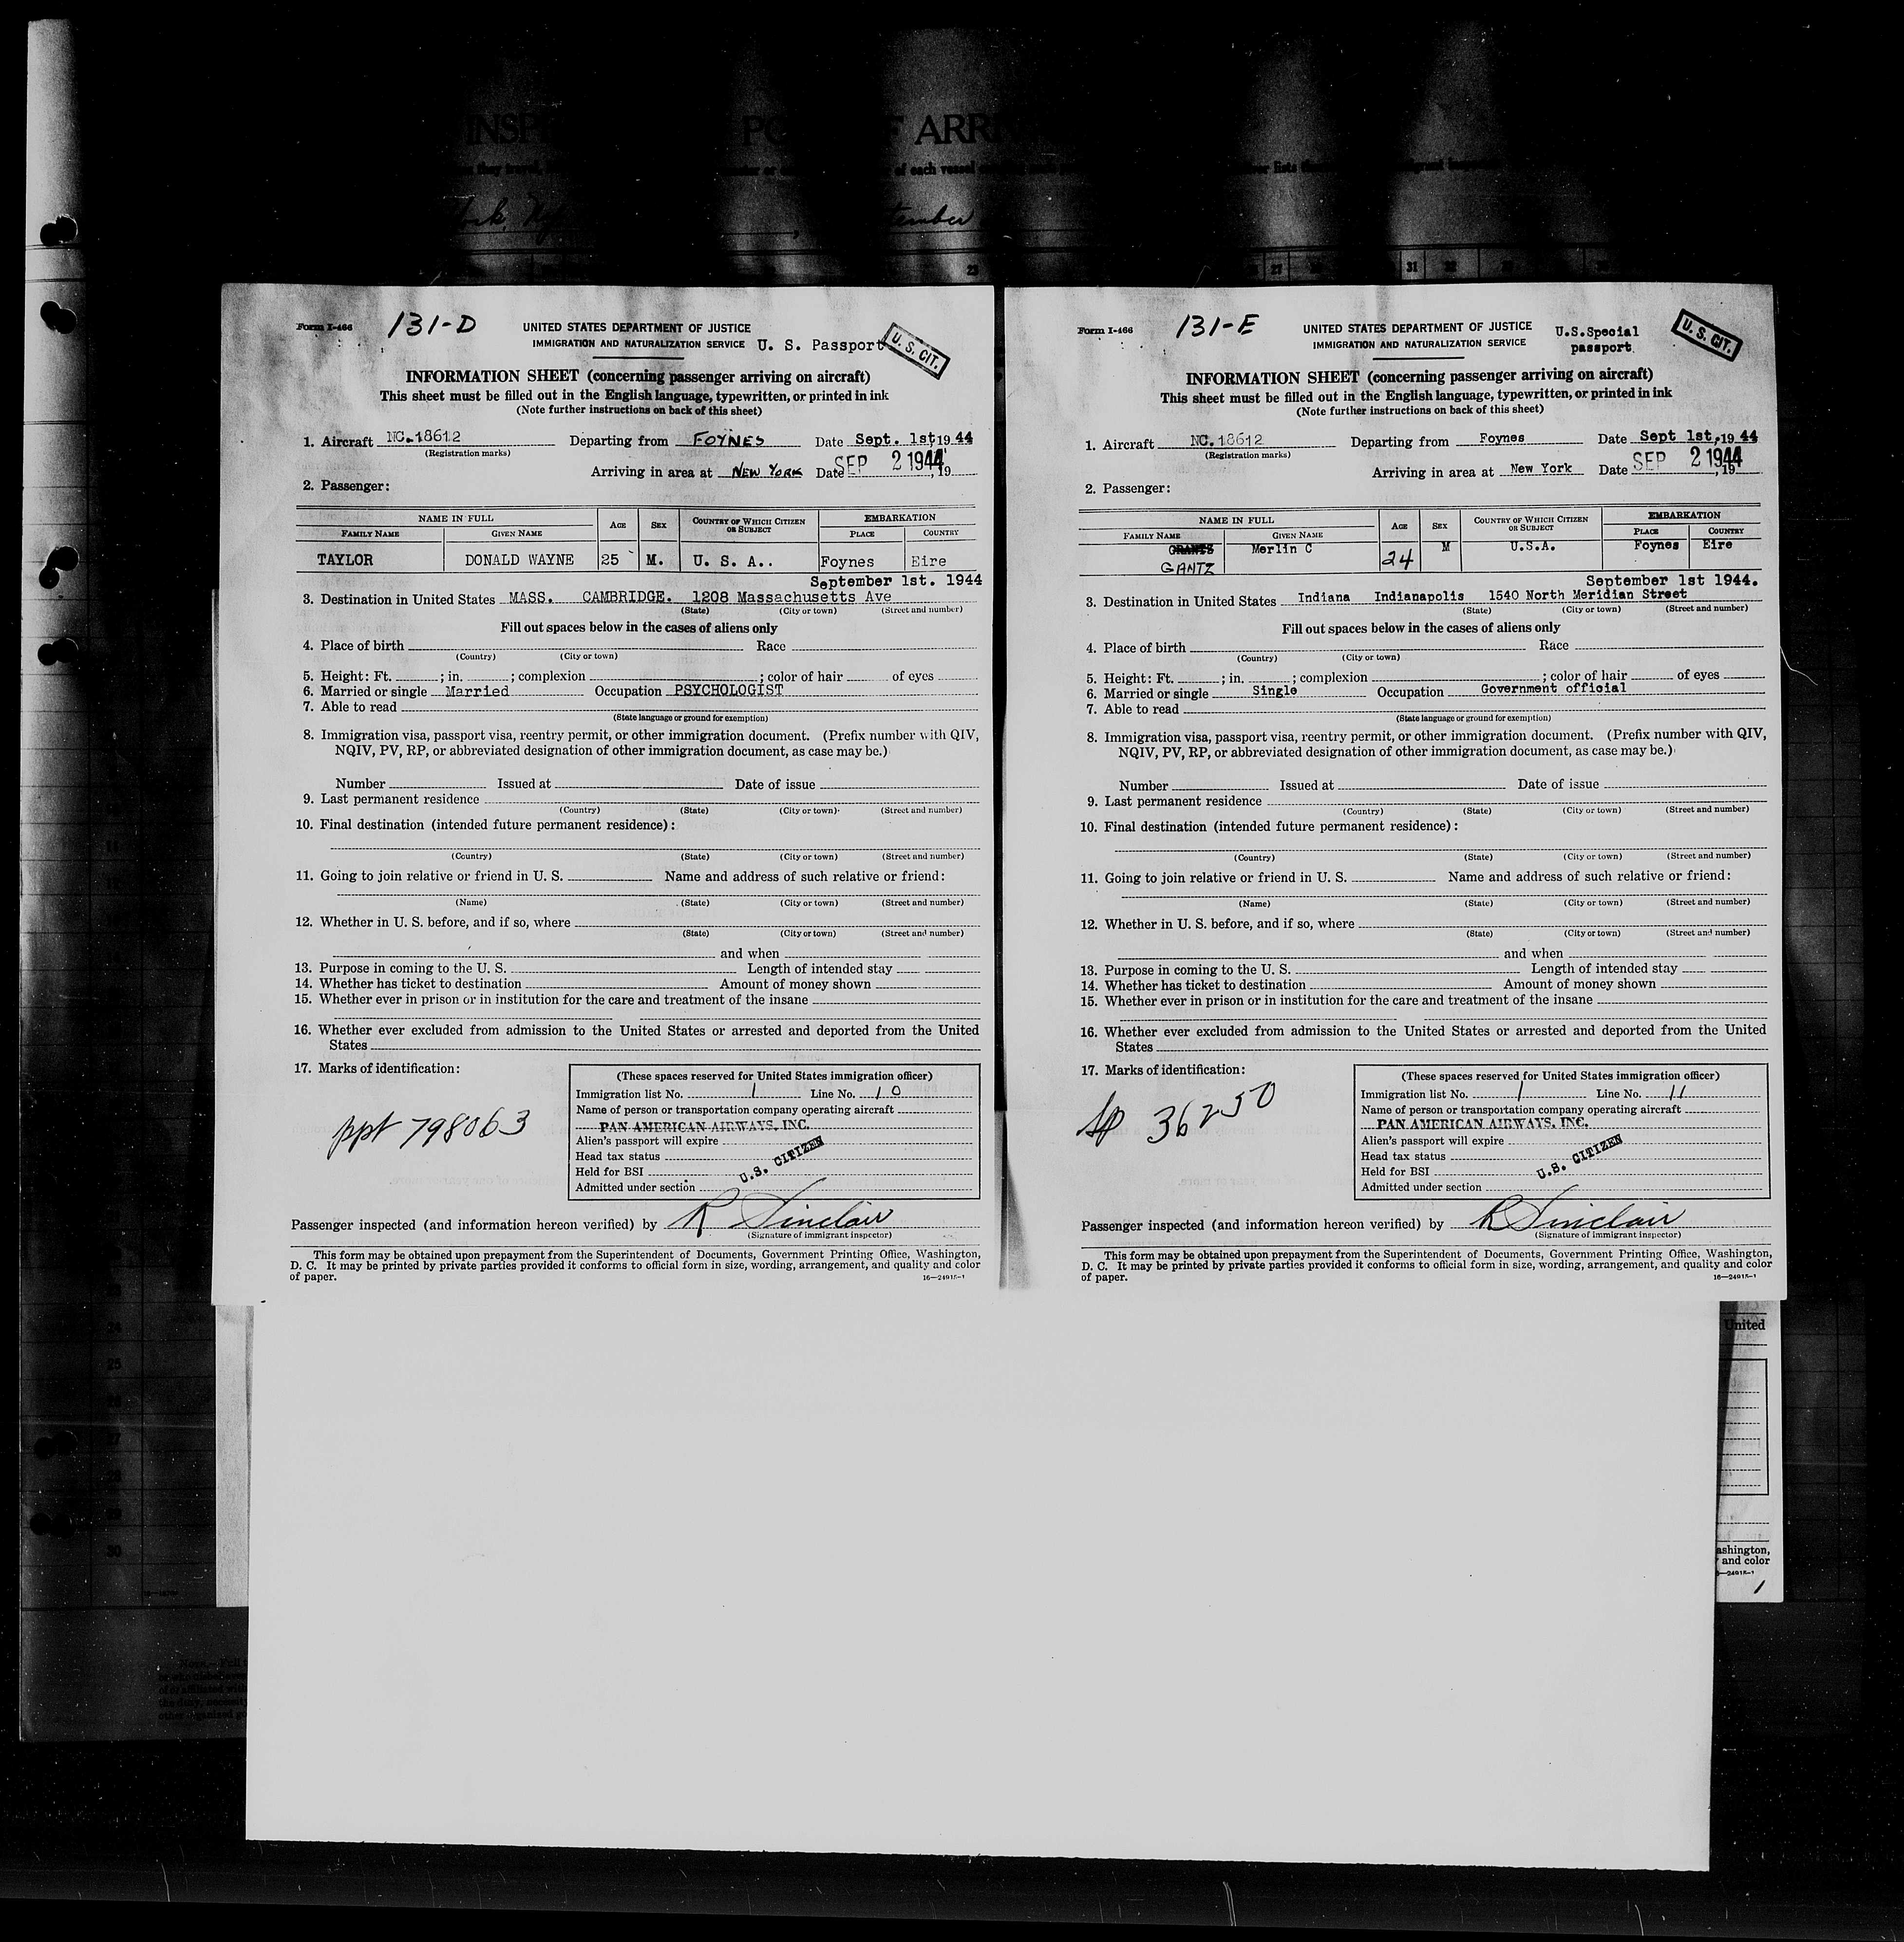 INSP
PO
F ARR
of each vessel
York, Ny
tember
23
27
31
Form I-466
131-D
UNITED STATES DEPARTMENT OF JUSTICE
IMMIGRATION AND NATURALIZATION SERVICE U. S. Passport
U. S. CIT.
INFORMATION SHEET (concerning passenger arriving on aircraft)
This sheet must be filled out in the English language, typewritten, or printed in ink
(Note further instructions on back of this sheet)
1. Aircraft NC.18612 Departing from FOYNES Date Sept. 1st, 1944
(Registration marks)
Arriving in area at NEW YORK Date SEP 2 1944, 19
2. Passenger:
NAME IN FULL AGE SEX COUNTRY OF WHICH CITIZEN OR SUBJECT EMBARKATION
FAMILY NAME GIVEN NAME PLACE COUNTRY
TAYLOR DONALD WAYNE 25 M. U. S. A.. Foynes Eire
September 1st. 1944
3. Destination in United States MASS. CAMBRIDGE. 1208 Massachusetts Ave
(State) (City or town) (Street and number)
Fill out spaces below in the cases of aliens only
4. Place of birth Race
(Country) (City or town)
5. Height: Ft. ; in. ; complexion ; color of hair of eyes
6. Married or single Married Occupation PSYCHOLOGIST
7. Able to read
(State language or ground for exemption)
8. Immigration visa, passport visa, reentry permit, or other immigration document. (Prefix number with QIV,
NQIV, PV, RP, or abbreviated designation of other immigration document, as case may be.)
Number Issued at Date of issue
9. Last permanent residence
(Country) (State) (City or town) (Street and number)
10. Final destination (intended future permanent residence):
(Country) (State) (City or town) (Street and number)
11. Going to join relative or friend in U. S. Name and address of such relative or friend:
(Name) (State) (City or town) (Street and number)
12. Whether in U. S. before, and if so, where
(State) (City or town) (Street and number)
and when
13. Purpose in coming to the U. S. Length of intended stay
14. Whether has ticket to destination Amount of money shown
15. Whether ever in prison or in institution for the care and treatment of the insane
16. Whether ever excluded from admission to the United States or arrested and deported from the United
States
17. Marks of identification:
ppt 798063
(These spaces reserved for United States immigration officer)
Immigration list No. 1 Line No. 10
Name of person or transportation company operating aircraft
PAN AMERICAN AIRWAYS, INC.
Alien's passport will expire
Head tax status
Held for BSI
U.S. CITIZEN
Admitted under section
Passenger inspected (and information hereon verified) by R Sinclair
(Signature of immigrant inspector)
This form may be obtained upon prepayment from the Superintendent of Documents, Government Printing Office, Washington,
D. C. It may be printed by private parties provided it conforms to official form in size, wording, arrangement, and quality and color
of paper.
16—24915-1
Form I-466
131-E
UNITED STATES DEPARTMENT OF JUSTICE
IMMIGRATION AND NATURALIZATION SERVICE
U.S.Special
passport
U. S. CIT.
INFORMATION SHEET (concerning passenger arriving on aircraft)
This sheet must be filled out in the English language, typewritten, or printed in ink
(Note further instructions on back of this sheet)
1. Aircraft NC.18612 Departing from Foynes Date Sept 1st, 1944
(Registration marks)
Arriving in area at New York Date SEP 2 1944, 19
2. Passenger:
NAME IN FULL AGE SEX COUNTRY OF WHICH CITIZEN OR SUBJECT EMBARKATION
FAMILY NAME GIVEN NAME PLACE COUNTRY
GRANTZ Merlin C 24 M U.S.A. Foynes Eire
GANTZ
September 1st 1944.
3. Destination in United States Indiana Indianapolis 1540 North Meridian Street
(State) (City or town) (Street and number)
Fill out spaces below in the cases of aliens only
4. Place of birth Race
(Country) (City or town)
5. Height: Ft. ; in. ; complexion ; color of hair of eyes
6. Married or single Single Occupation Government official
7. Able to read
(State language or ground for exemption)
8. Immigration visa, passport visa, reentry permit, or other immigration document. (Prefix number with QIV,
NQIV, PV, RP, or abbreviated designation of other immigration document, as case may be.)
Number Issued at Date of issue
9. Last permanent residence
(Country) (State) (City or town) (Street and number)
10. Final destination (intended future permanent residence):
(Country) (State) (City or town) (Street and number)
11. Going to join relative or friend in U. S. Name and address of such relative or friend:
(Name) (State) (City or town) (Street and number)
12. Whether in U. S. before, and if so, where
(State) (City or town) (Street and number)
and when
13. Purpose in coming to the U. S. Length of intended stay
14. Whether has ticket to destination Amount of money shown
15. Whether ever in prison or in institution for the care and treatment of the insane
16. Whether ever excluded from admission to the United States or arrested and deported from the United
States
17. Marks of identification:
Sp 36250
(These spaces reserved for United States immigration officer)
Immigration list No. 1 Line No. 11
Name of person or transportation company operating aircraft
PAN AMERICAN AIRWAYS, INC.
Alien's passport will expire
Head tax status
Held for BSI
U.S. CITIZEN
Admitted under section
Passenger inspected (and information hereon verified) by R Sinclair
(Signature of immigrant inspector)
This form may be obtained upon prepayment from the Superintendent of Documents, Government Printing Office, Washington,
D. C. It may be printed by private parties provided it conforms to official form in size, wording, arrangement, and quality and color
of paper.
16—24915-1
United
24
25
30
ashington,
and color
—24915-1
1